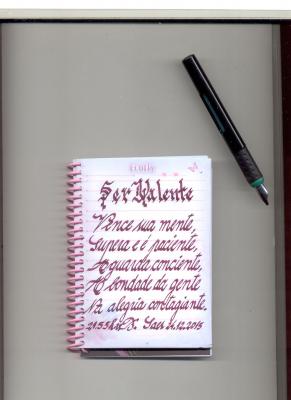 Ser Valente
Vence sua mente,
Supera e é paciente,
Aguarda conciente,
A bondade da gente
Na alegria contagiante.
24.12.2015